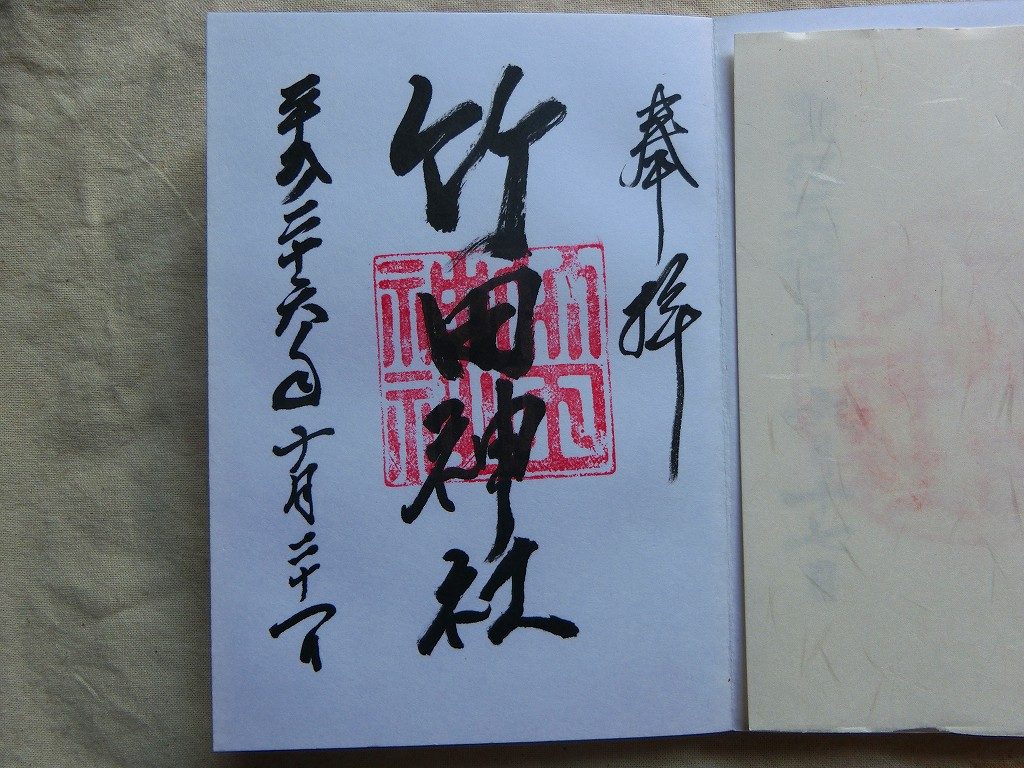 奉拝
竹田神社
竹田神社
平成二十六年十月二十一日